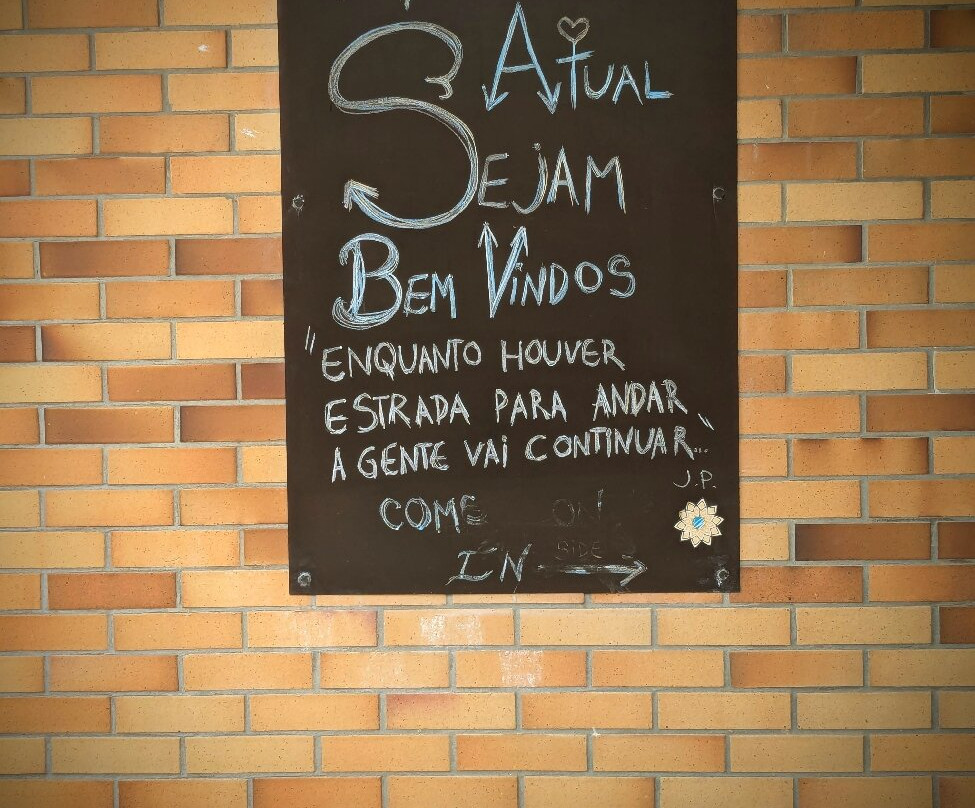 ATUAL
SEJAM
BEM VINDOS
"ENQUANTO HOUVER
ESTRADA PARA ANDAR
A GENTE VAI CONTINUAR..."
J.P.
COME ON
IN SIDE